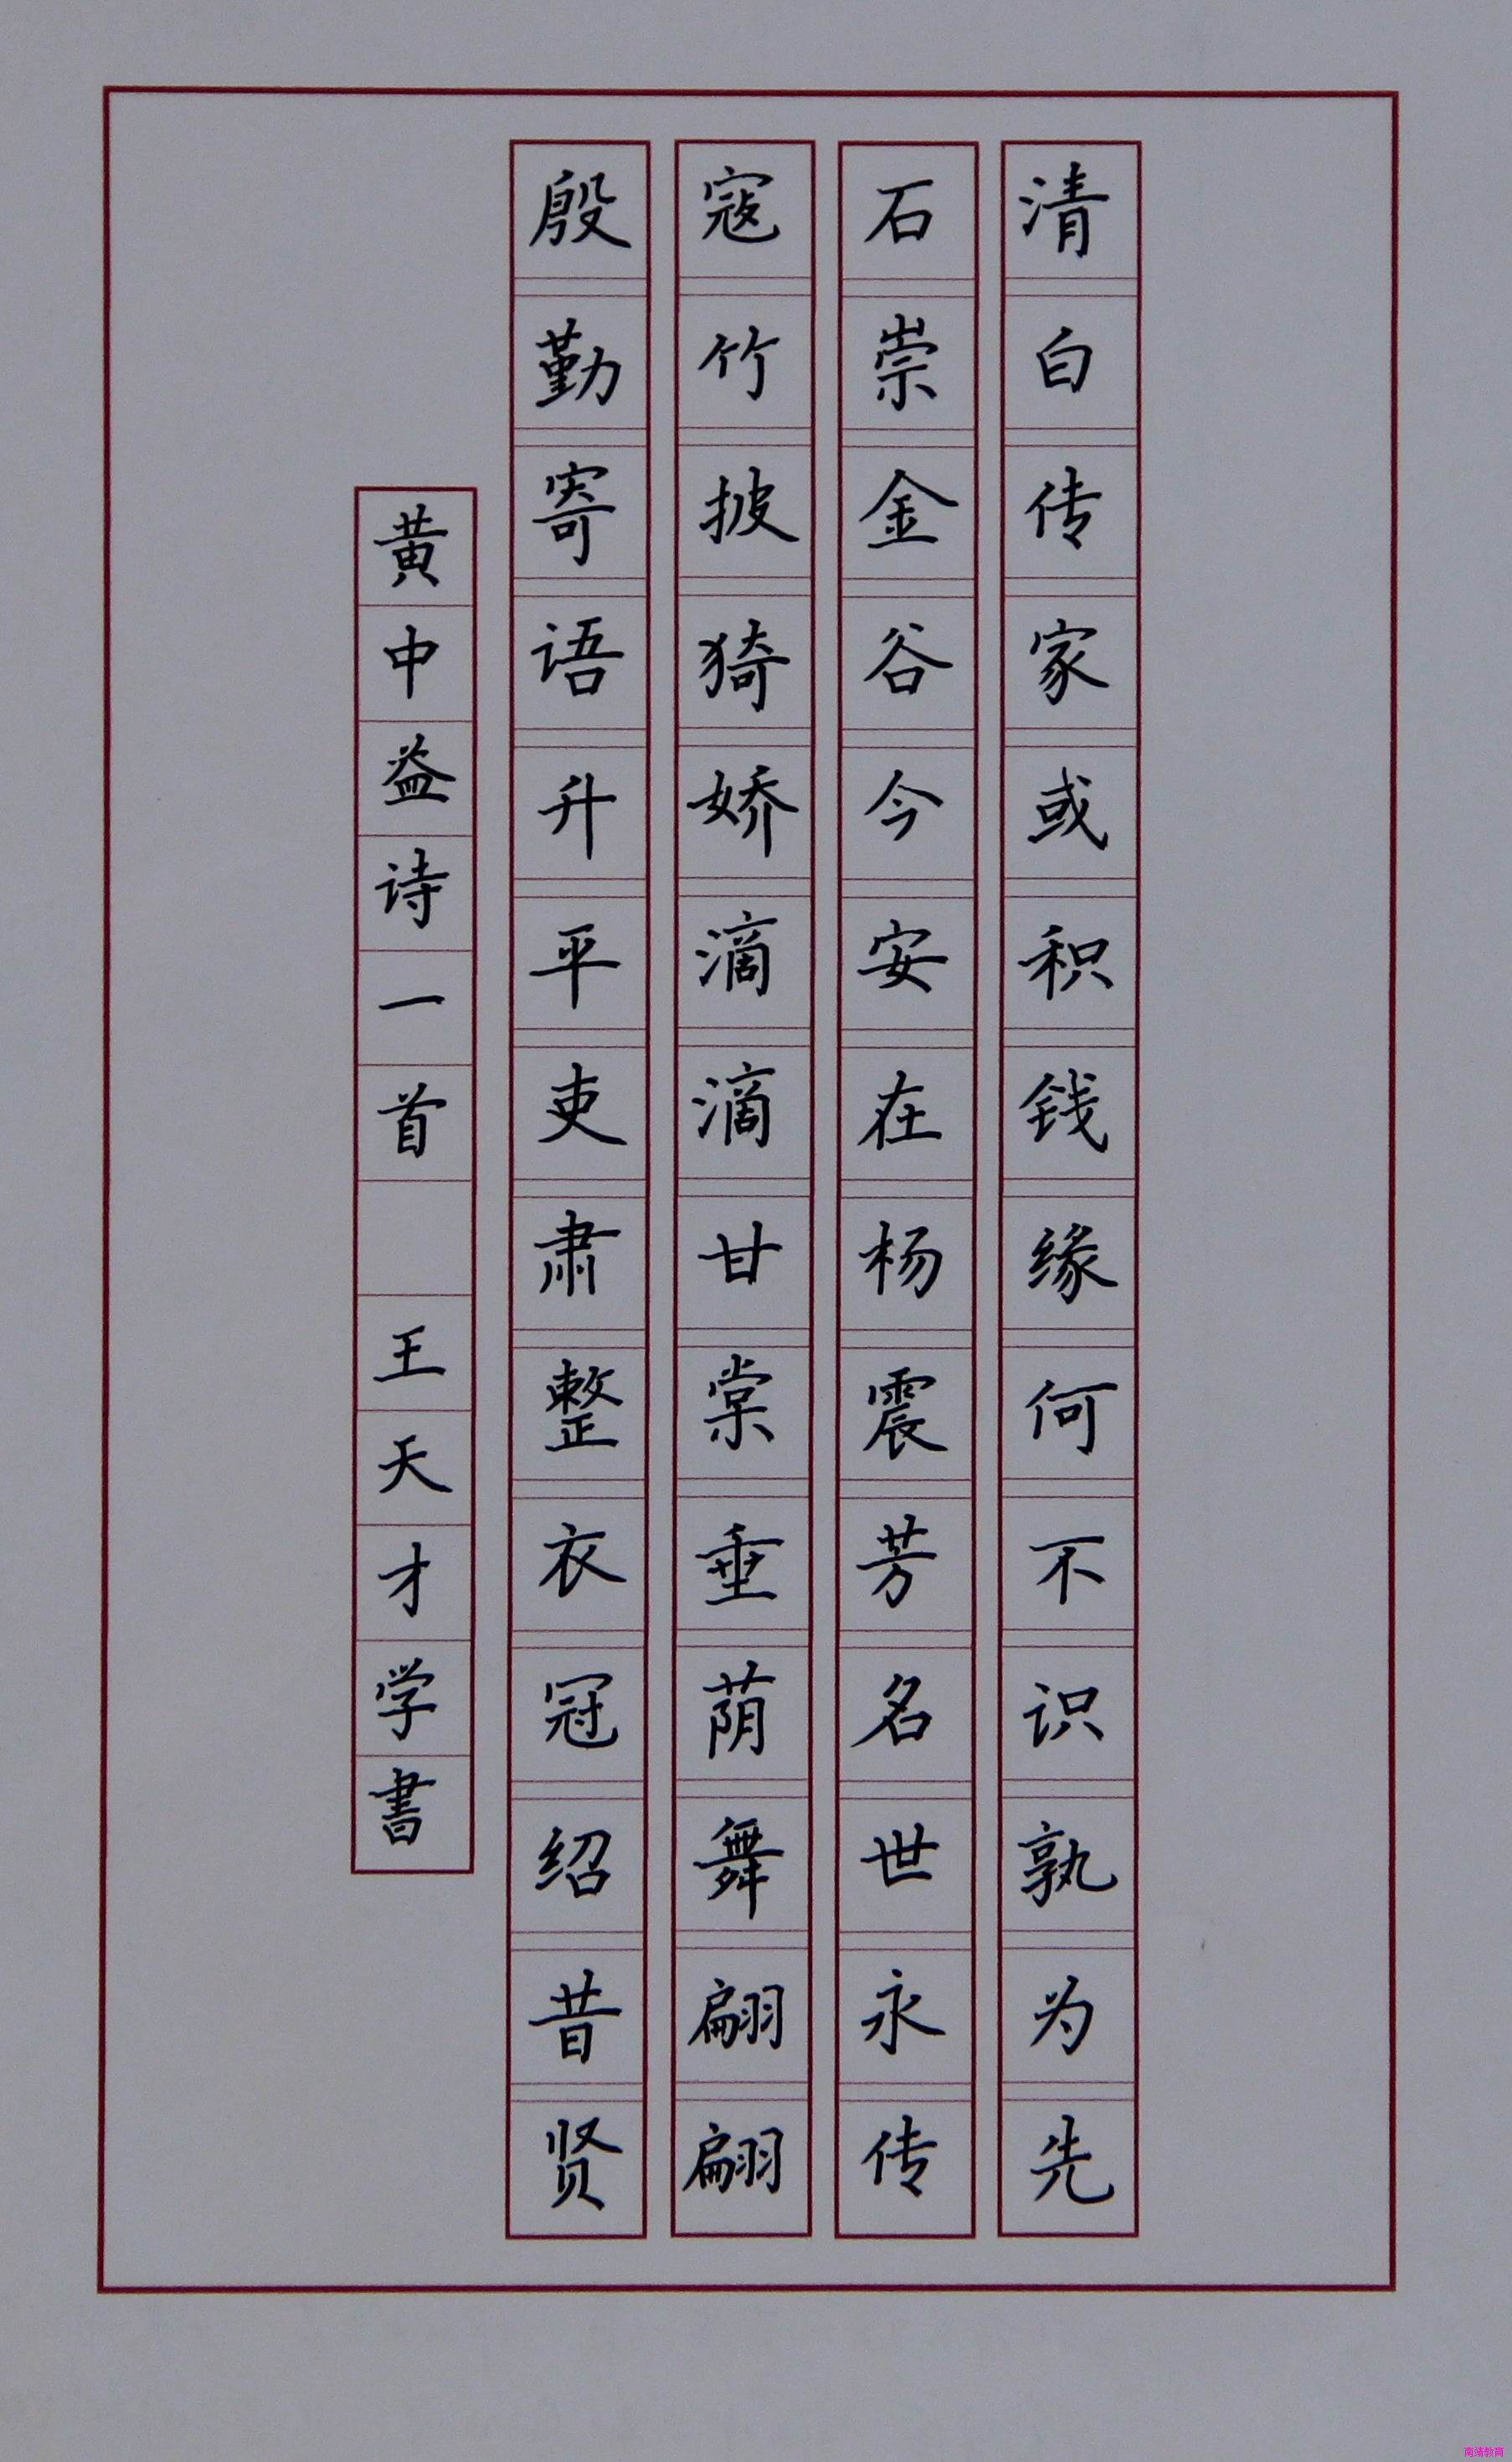 清白传家或积钱缘何不识孰为先
石崇金谷今安在杨震芳名世永传
寇竹披猗娇滴滴甘棠垂荫舞翩翩
殷勤寄语升平吏肃整衣冠绍昔贤
黄中益诗一首 王天才学書
南清教育